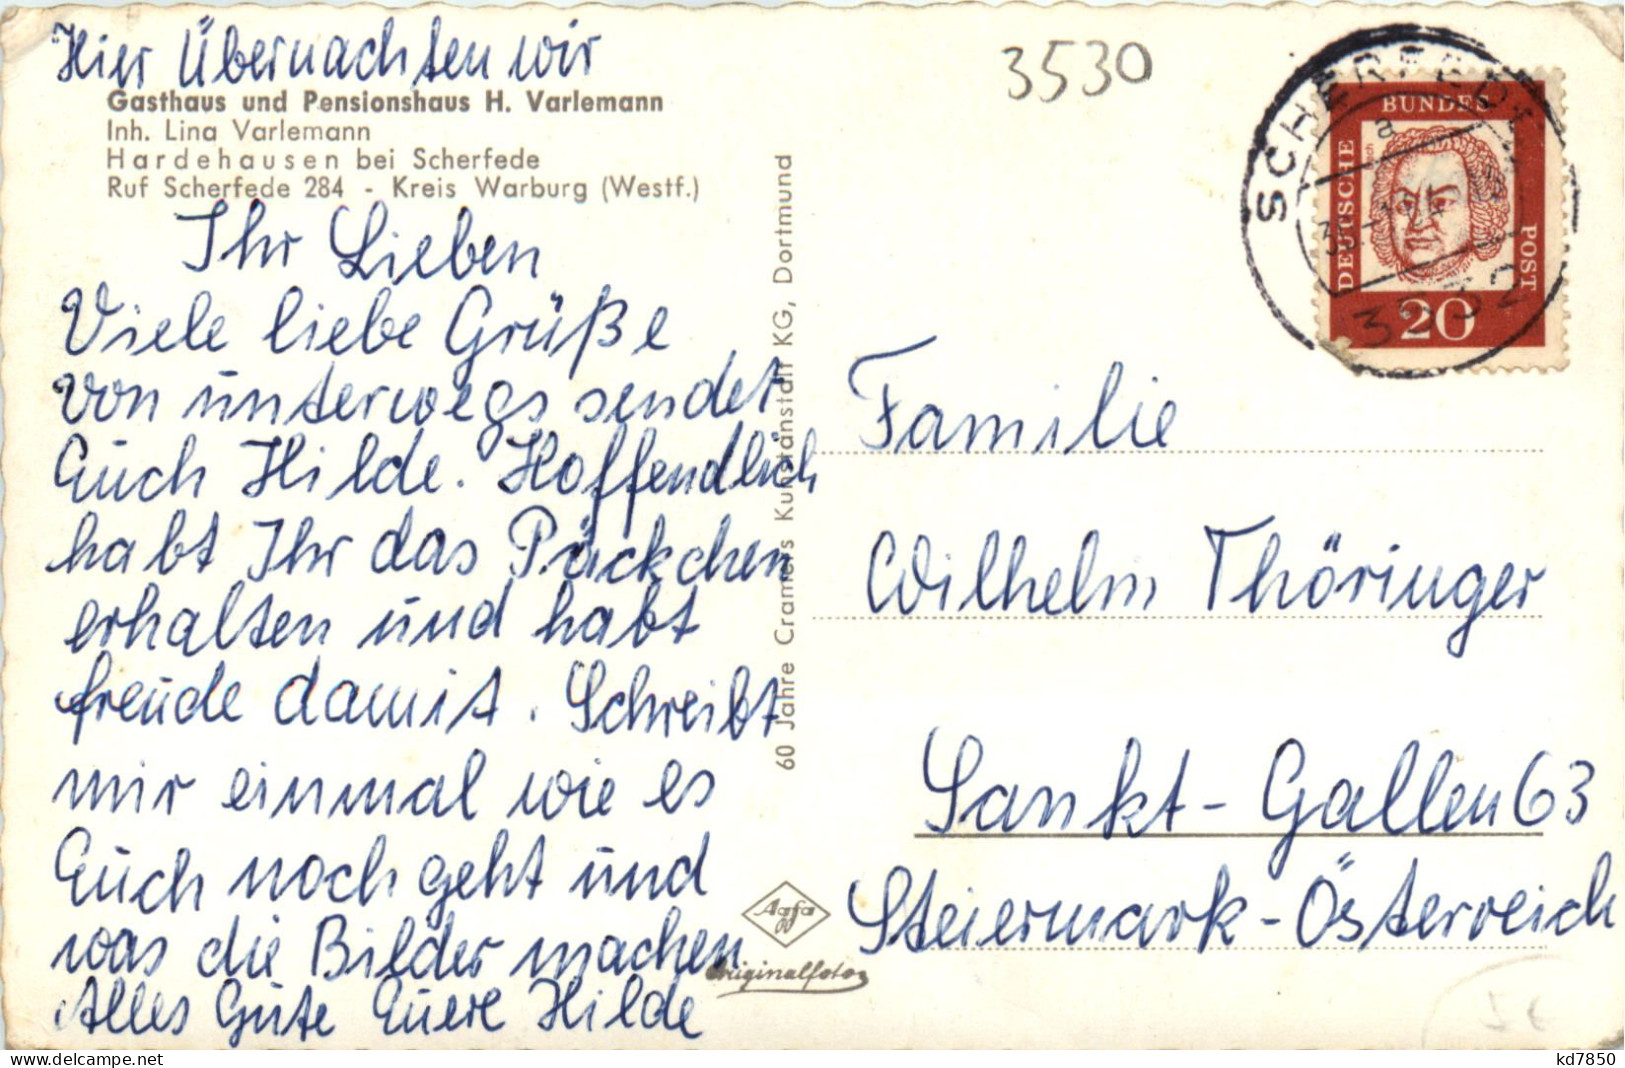 Hier Übernachten wir
Gasthaus und Pensionshaus H. Varlemann
Inh. Lina Varlemann
Hardehausen bei Scherfede
Ruf Scherfede 284 - Kreis Warburg (Westf.)
Ihr Lieben
Viele liebe Grüße
von unterwegs sendet
Euch Hilde. Hoffendlich
habt Ihr das Päckchen
erhalten und habt
freude damit. Schreibt
mir einmal wie es
Euch noch geht und
was die Bilder machen
Alles Gute Euere Hilde
60 Jahre Cramers Kunstanstalt KG, Dortmund
Agfa
Originalfoto
3530
SCHERFEDE
a
3532
DEUTSCHE
BUNDES
POST
20
Familie
Wilhelm Thöringer
Sankt-Gallen 63
Steiermark-Österreich
kd7850